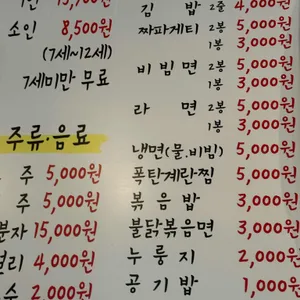 소인 8,500원
(7세~12세)
7세미만 무료
주류.음료
주 5,000원
주 5,000원
분자 15,000원
4,000원
수 2,000원
김밥 2줄 4,000원
짜파게티 2봉 5,000원
1봉 3,000원
비빔면 2봉 5,000원
1봉 3,000원
라면 2봉 5,000원
1봉 3,000원
냉면(물.비빔) 5,000원
폭탄계란찜 5,000원
볶음밥 3,000원
불닭볶음면 3,000원
누룽지 2,000원
공기밥 1,000원